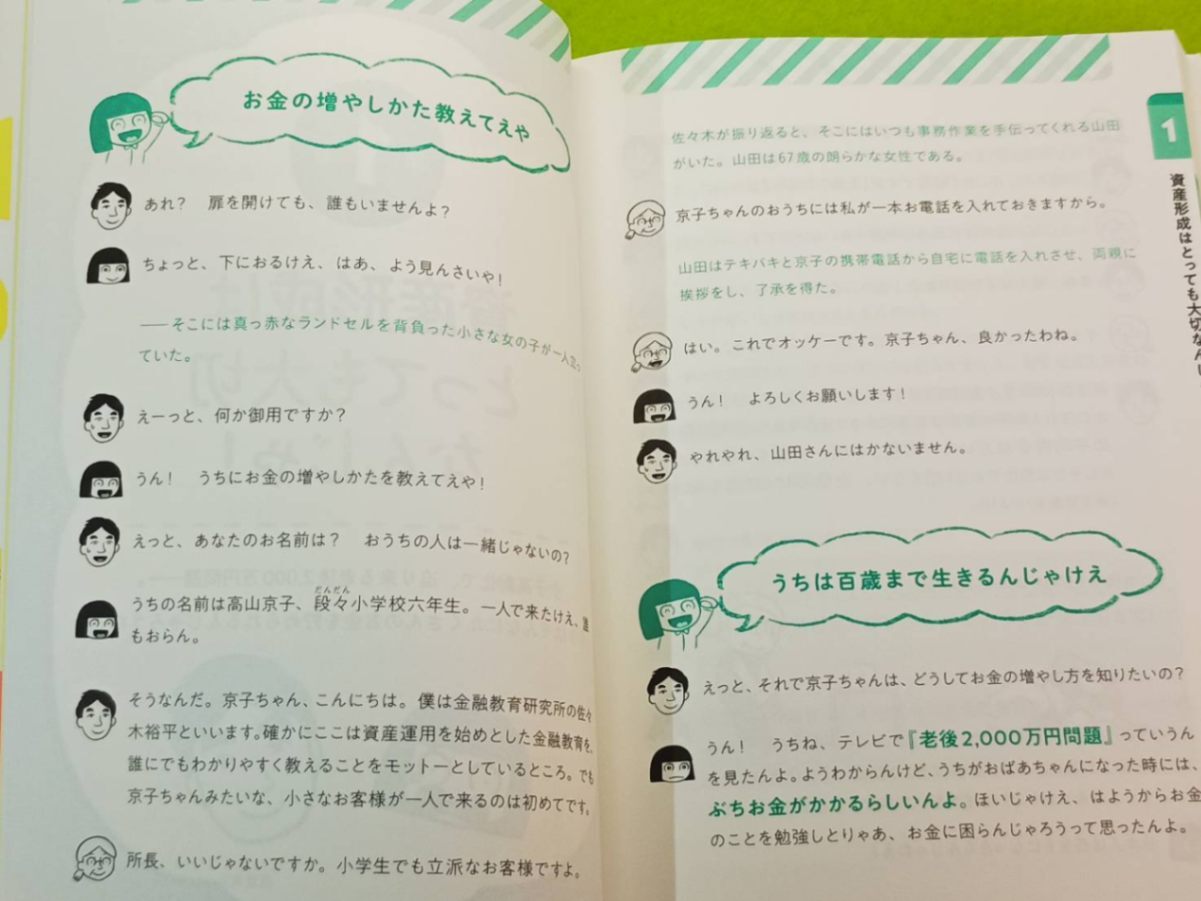 お金の増やしかた教えてえや
あれ？　扉を開けても、誰もいませんよ？
ちょっと、下におるけえ、はあ、よう見んさいや！
──そこには真っ赤なランドセルを背負った小さな女の子が一人立っ
ていた。
えーっと、何か御用ですか？
うん！　うちにお金の増やしかたを教えてえや！
えっと、あなたのお名前は？　おうちの人は一緒じゃないの？
だんだん
うちの名前は高山京子、段々小学校六年生。一人で来たけえ、誰
もおらん。
そうなんだ。京子ちゃん、こんにちは。僕は金融教育研究所の佐々
木裕平といいます。確かにここは資産運用を始めとした金融教育を、
誰にでもわかりやすく教えることをモットーとしているところ。でも
京子ちゃんみたいな、小さなお客様が一人で来るのは初めてです。
所長、いいじゃないですか。小学生でも立派なお客様ですよ。
佐々木が振り返ると、そこにはいつも事務作業を手伝ってくれる山田
がいた。山田は67歳の朗らかな女性である。
京子ちゃんのおうちには私が一本お電話を入れておきますから。
山田はテキパキと京子の携帯電話から自宅に電話を入れさせ、両親に
挨拶をし、了承を得た。
はい。これでオッケーです。京子ちゃん、良かったわね。
うん！　よろしくお願いします！
やれやれ、山田さんにはかないません。
うちは百歳まで生きるんじゃけえ
えっと、それで京子ちゃんは、どうしてお金の増やし方を知りたいの？
うん！　うちね、テレビで『老後2,000万円問題』っていうん
を見たんよ。ようわからんけど、うちがおばあちゃんになった時には、
ぶちお金がかかるらしいんよ。ほいじゃけえ、はようからお金
のことを勉強しとりゃあ、お金に困らんじゃろうって思ったんよ。
1
資産形成はとっても大切なん